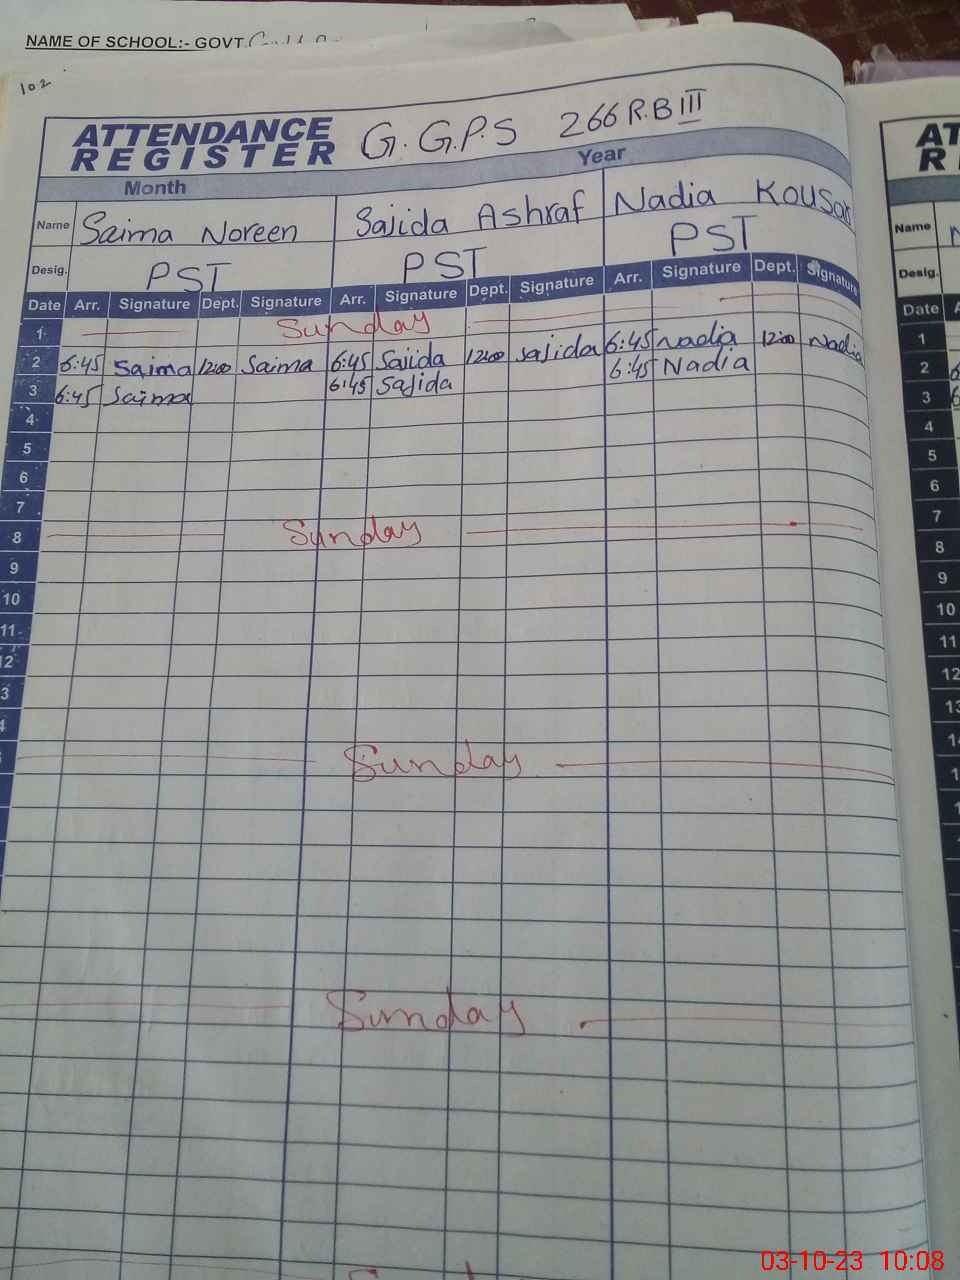 NAME OF SCHOOL:- GOVT
102
ATTENDANCE REGISTER G.G.P.S 266 R.B III
Month Year
Name Saima Noreen Sajida Ashraf Nadia Kousar
Desig. PST PST PST
Date Arr. Signature Dept. Signature Arr. Signature Dept. Signature Arr. Signature Dept. Signature
1 Sunday
2 6:45 Saima 12:00 Saima 6:45 Sajida 12:00 Sajida 6:45 Nadia 12:00 Nadia
3 6:45 Saima 6:45 Sajida 6:45 Nadia
4
5
6
7
8 Sunday
9
10
11
12
3
4
Sunday
Sunday
AT
R
Name
Desig.
Date
1
2
3
4
5
6
7
8
9
10
11
12
13
14
03-10-23 10:08